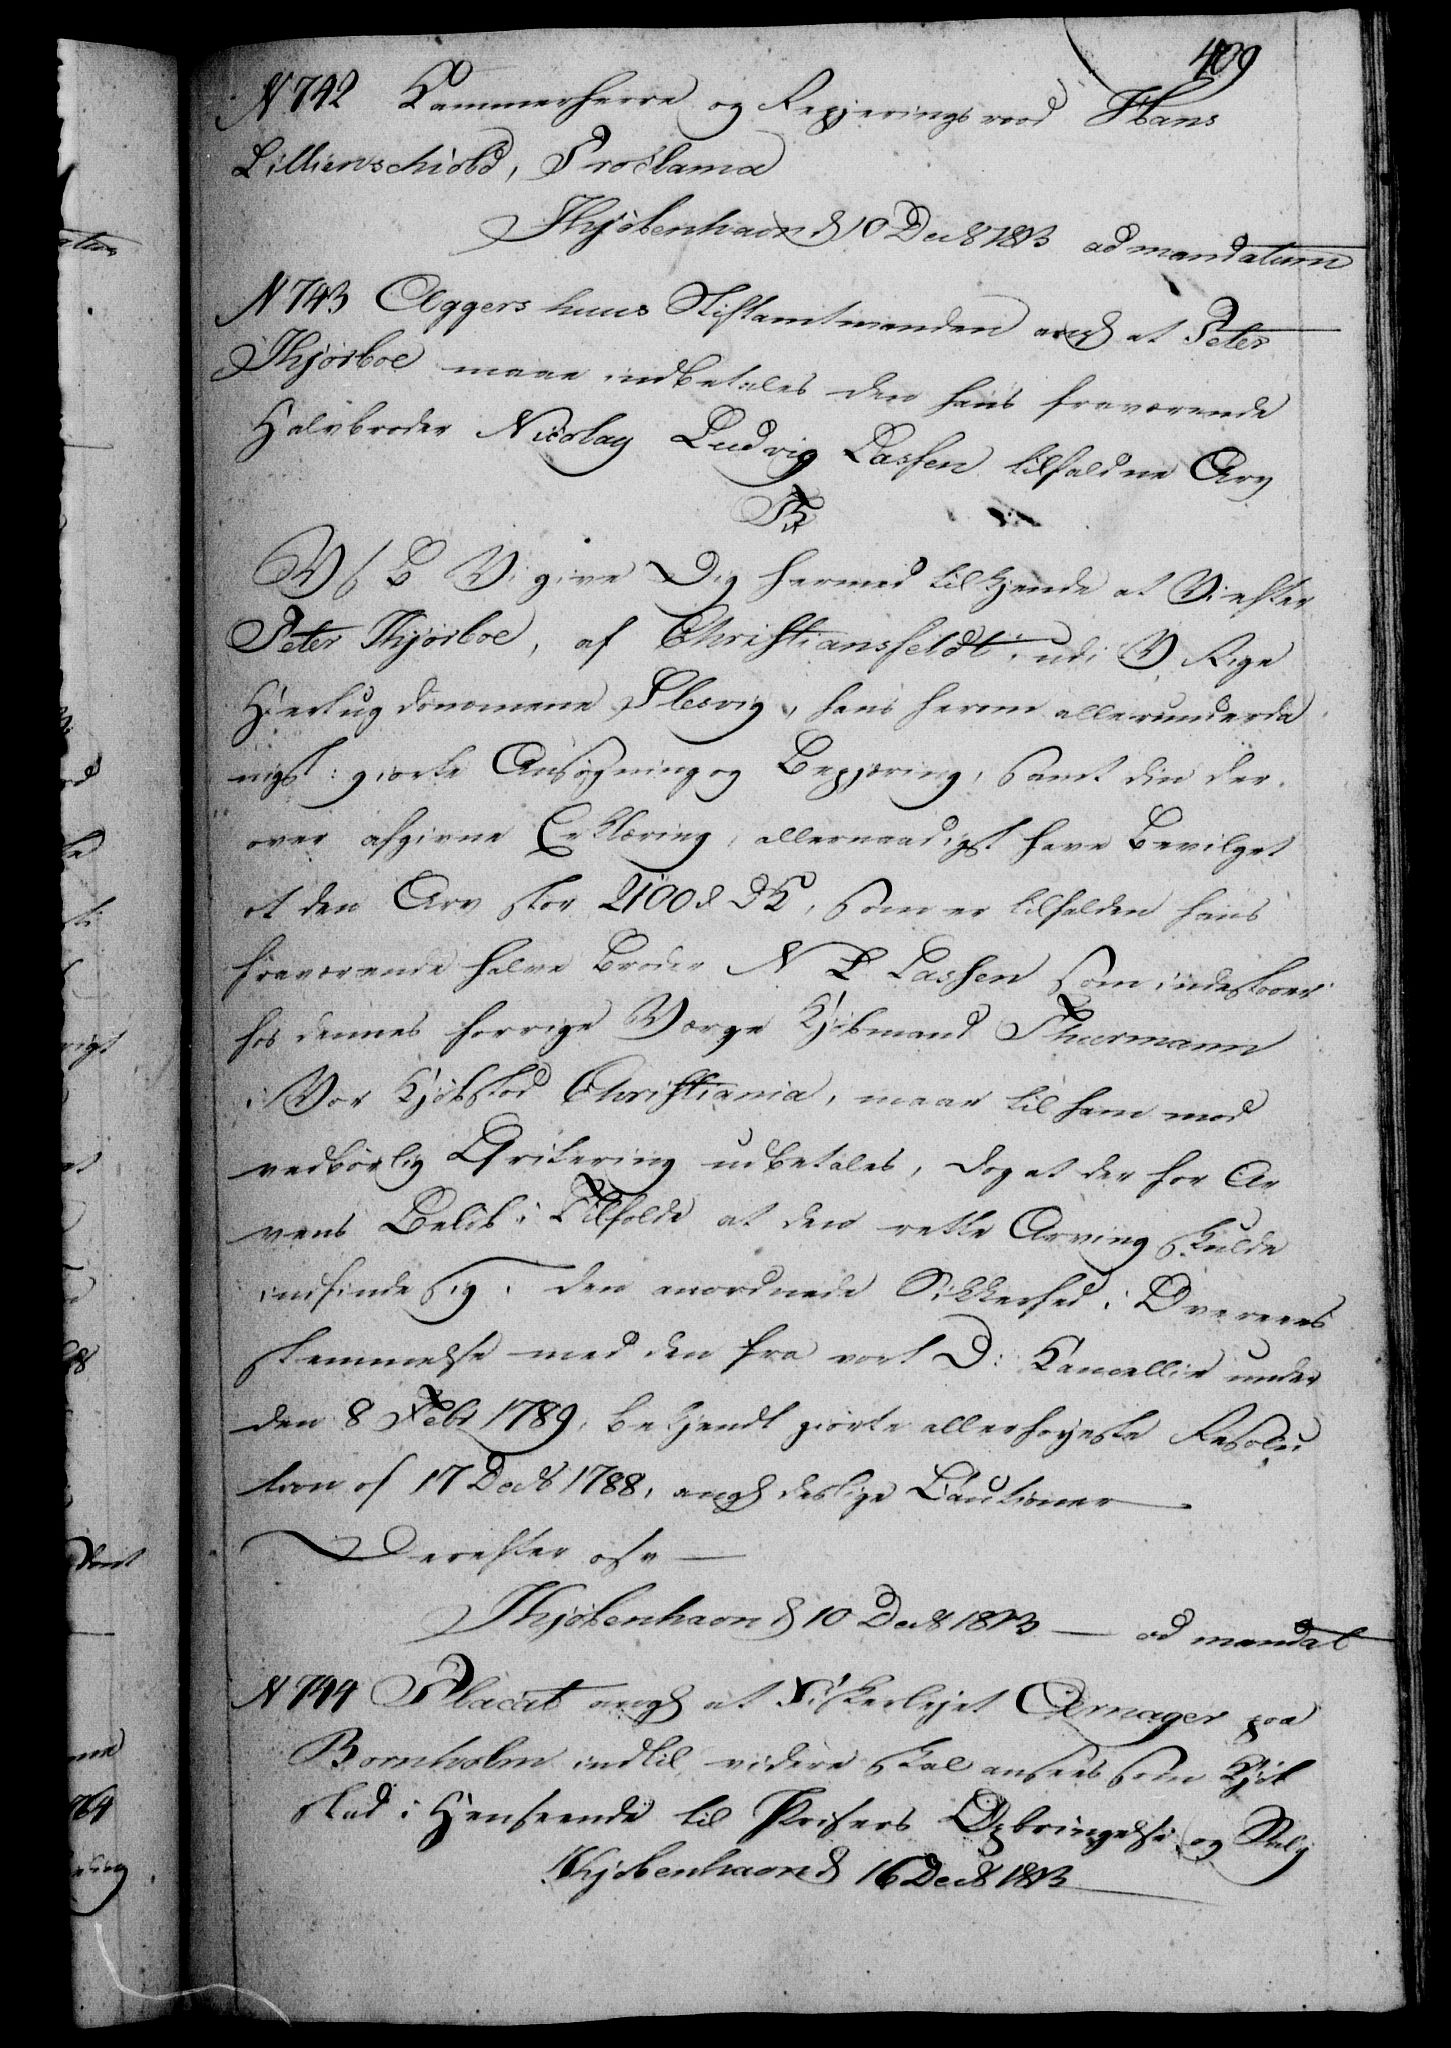 409
N 742 Kammerherre og Regjeringsraad Hans
Lillienschiold, Proclama
Khjøbenhavn d 10 Decbr 1813 ad mandatum
N 743 Aggershuus Stiftamtmanden angd at Peter
Khjørboe maae indbetales den hans fraværende
Halvbroder Nicolay Ludvig Lassen tilfaldne Arv
Vi give Dig hermed tilkjende at Vi efter
Peter Khjørboe, af Christiansfeldt udi V Rige
Hertugdommene Slesvig, hans herom allerunderda
nigst giorte Ansøgning og Begjæring, samt din der
over afgivne Erklæring, allernaadigst have Bevilget
at den Arv stor 2100 d DK, som er tilfalden hans
fraværende halve Broder N L Lassen som indestaaer
hos dennes forrige Værge Kjøbmand Thurmann
i Vor Kjøbstad Christiania, maae til ham mod
vedbørlig Qvitering udbetales, dog at der for Ar
vens Beløb i Tilfælde at den rette Arving skulde
indfinde sig, den anordnede Sikkerhed i Overeens
stemmelse med den fra vort D: Kancellie under
den 8 Febr 1789, bekjendt giorte allerhøyeste Resolu
tion af 17 Decbr 1788, angd deslige Cautioner
Derefter osv
Khjøbenhavn d 10 Decbr 1813 — ad mandat
N 744 Placat angd at Fiskerlejet Arnager paa
Bornholm indtil videre skal ansees som Kjøb
stad i Henseende til Prisers Opbringelse og Salg
Khjøbenhavn d 16 Decbr 1813